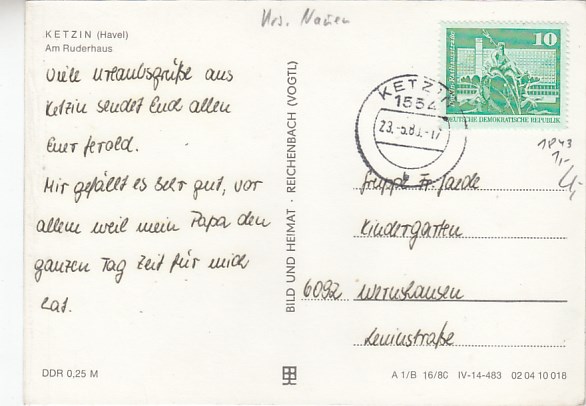 Krs. Nauen
KETZIN (Havel)
Am Ruderhaus
Viele Urlaubsgrüße aus
Ketzin sendet Euch allen
Euer Jerold.
Mir gefällt es sehr gut, vor
allem weil mein Papa den
ganzen Tag Zeit für mich
hat.
DDR 0,25 M
BILD UND HEIMAT · REICHENBACH (VOGTL)
10
DEUTSCHE DEMOKRATISCHE REPUBLIK
KETZIN
1554
23.-5.8
1843
1,-
4,-
Gruppe Fr. Jaede
Kindergarten
6092 Wernshausen
Leninstraße
A 1/B 16/80 IV-14-483 02 04 10 018